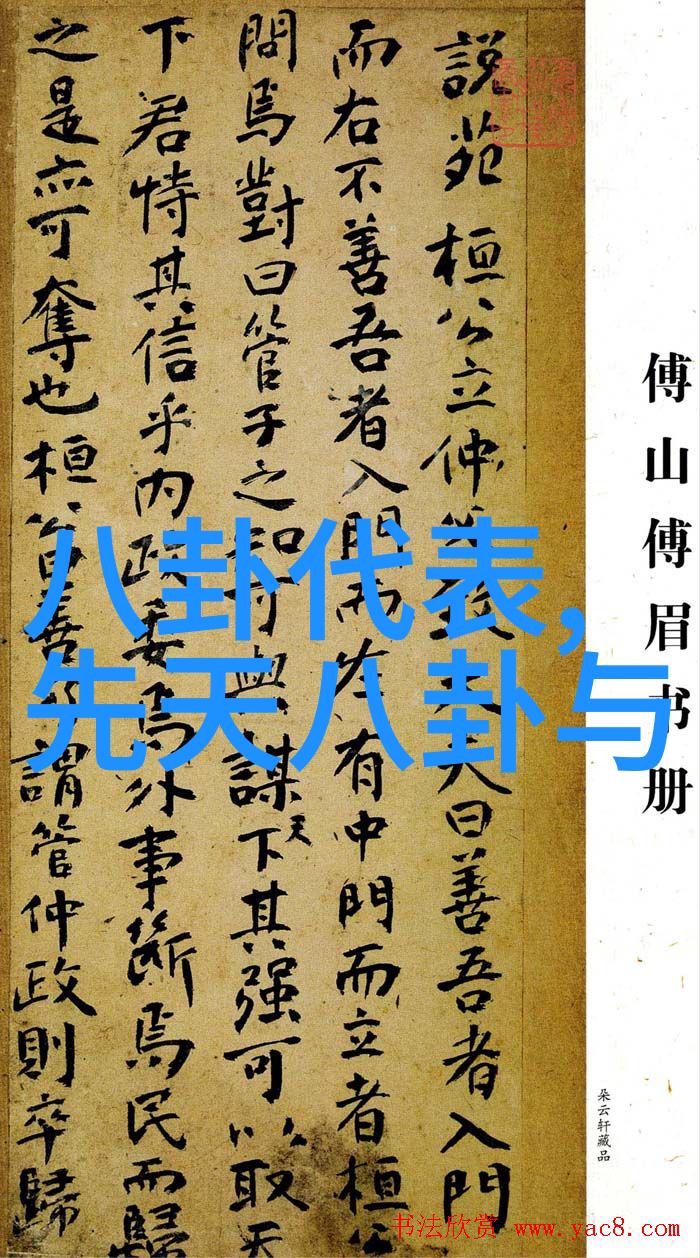 傅山傅眉书册
朵云轩藏品
説苑 桓公立仲父致大夫曰善吾者入門
而右不善吾者入門而左有中門而立者桓公
問焉對曰管子之知可與謀天下其强可以取天
下君恃其信乎内政委焉外事斷焉民而歸
之是亦可奪也桓公曰善乃謂管仲政則卒歸
八卦代表，
先天八卦与
书法欣赏 www.yac8.com